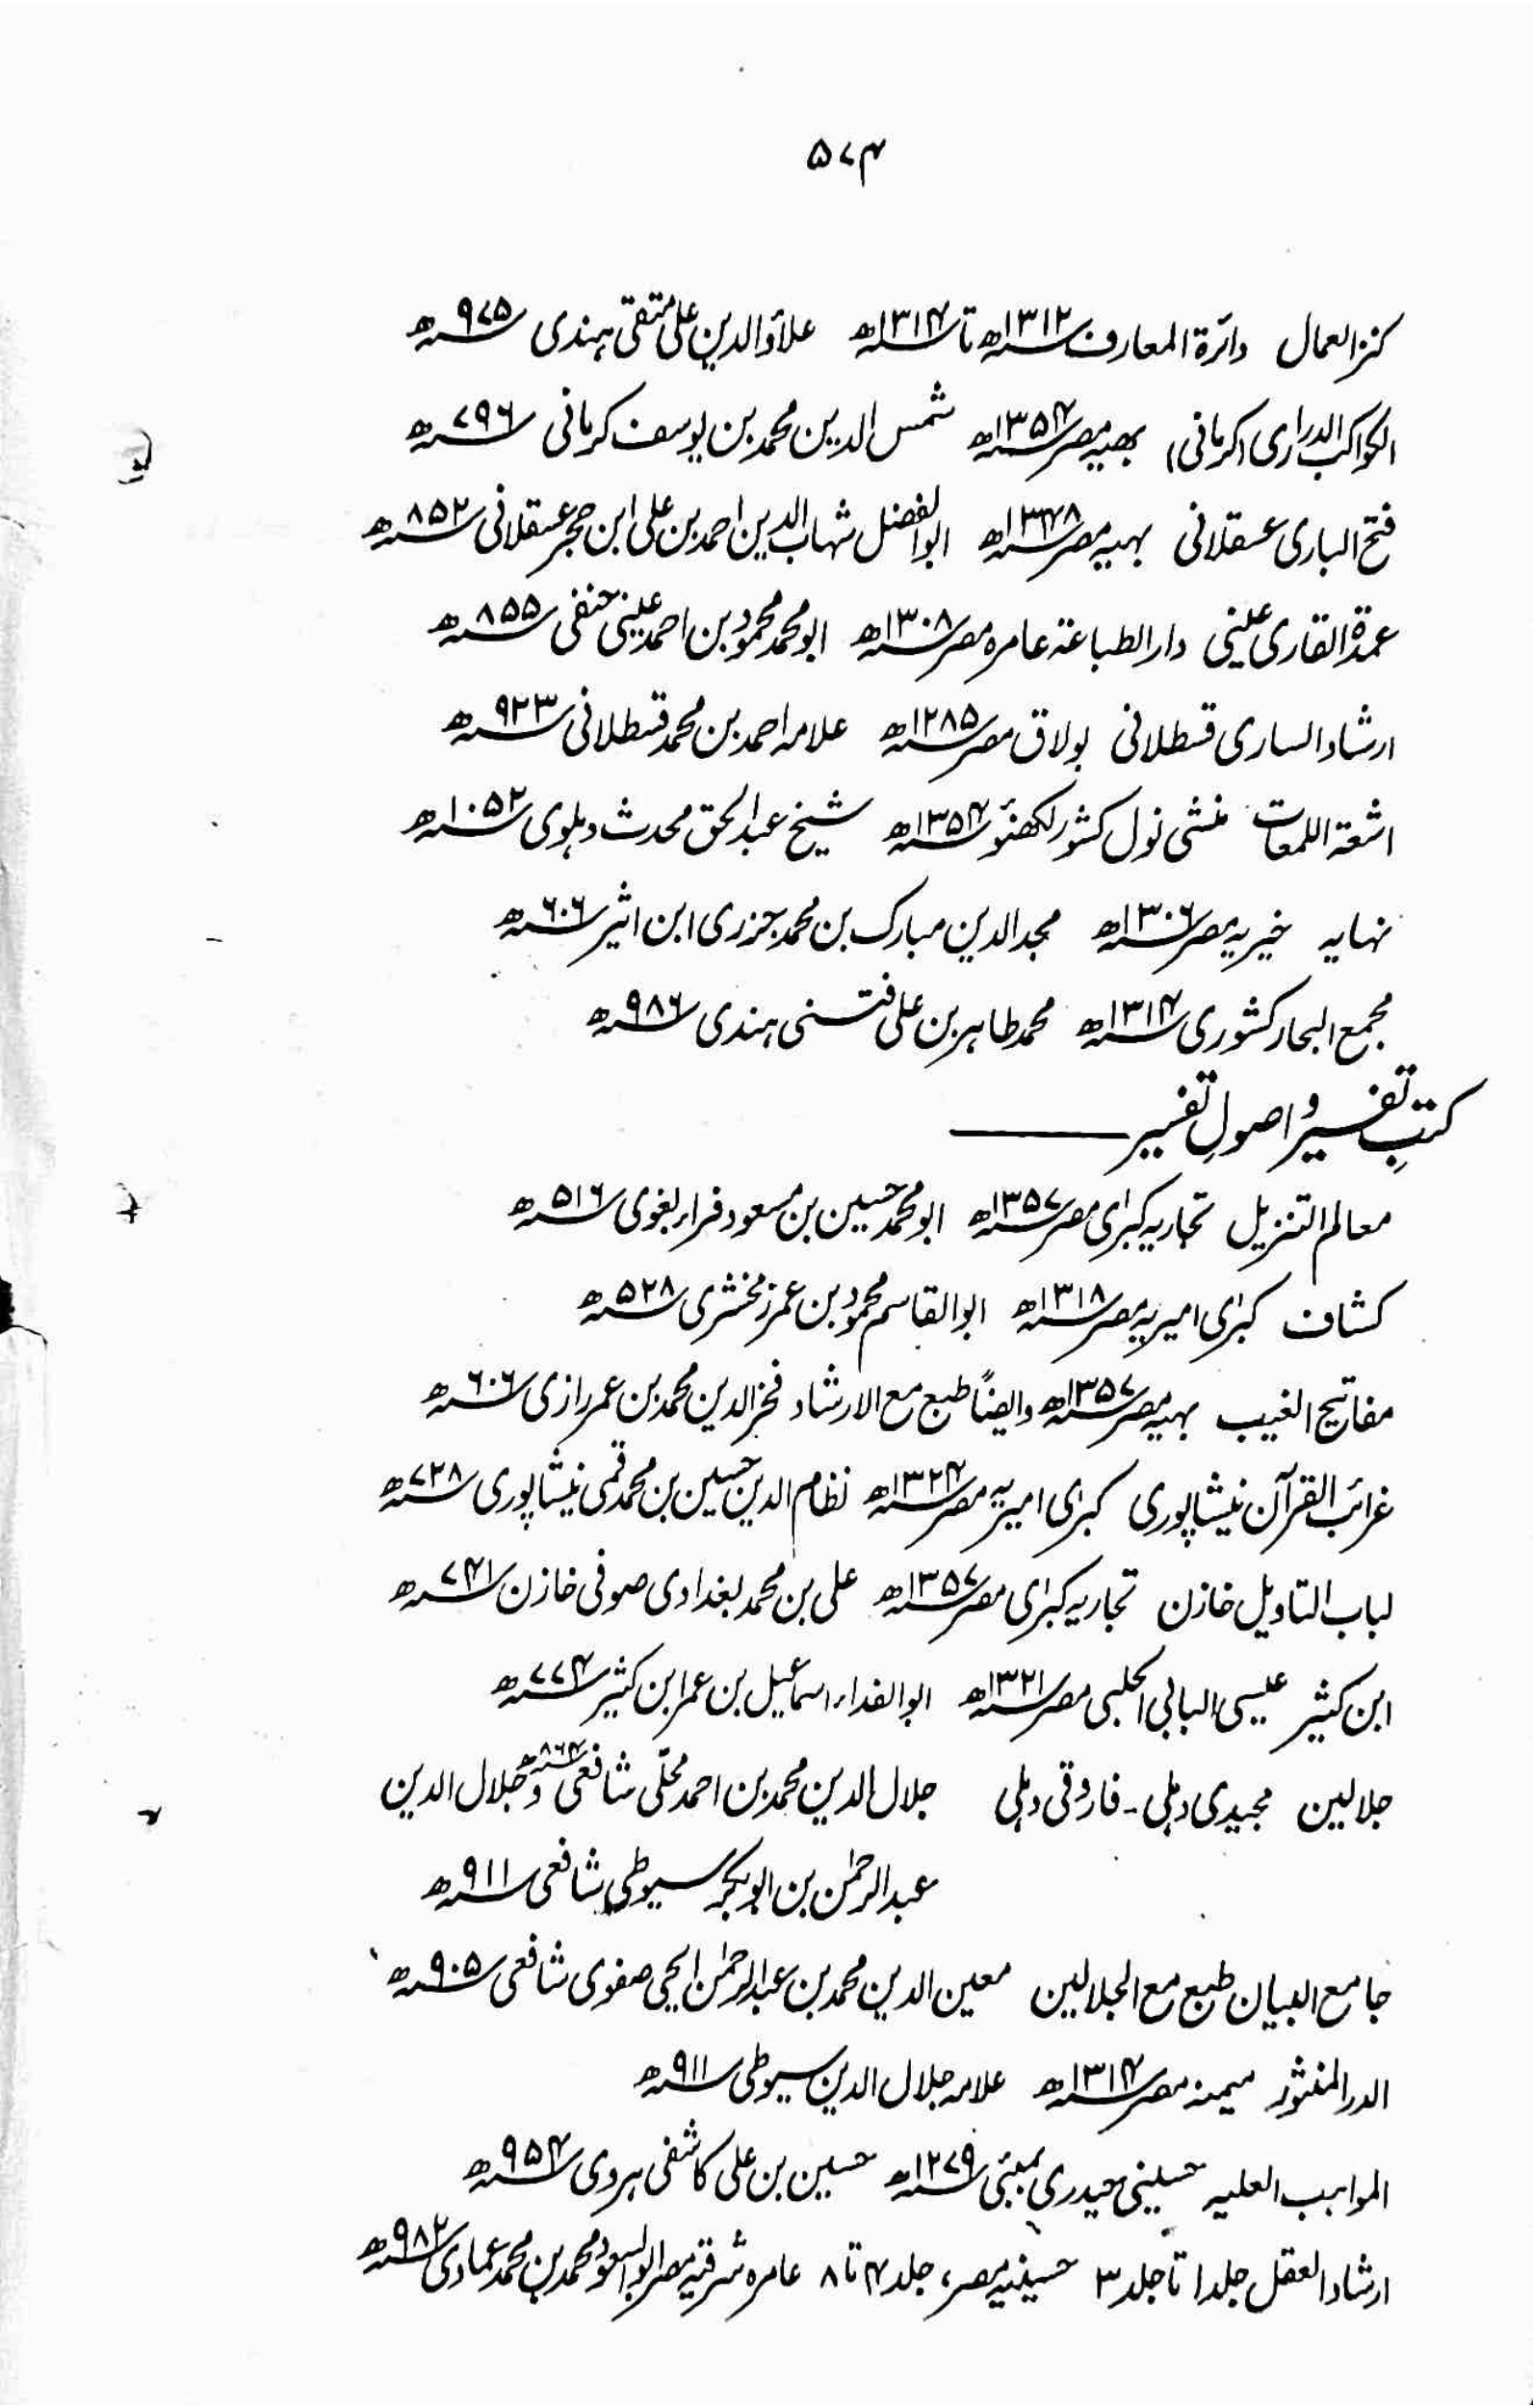 ۵۷۴
کنز العمال دائرۃ المعارف ۱۳۱۲ھ تا ۱۳۱۴ھ علاؤالدین علی متقی ہندی ۹۷۵ھ
الکواکب الدراری (کرمانی) بھیہ مصر ۱۳۵۴ھ شمس الدین محمد بن یوسف کرمانی ۷۹۶ھ
فتح الباری عسقلانی بہیہ مصر ۱۳۴۸ھ ابوالفضل شہاب الدین احمد بن علی ابن حجر عسقلانی ۸۵۲ھ
عمدۃ القاری عینی دار الطباعۃ عامرہ مصر ۱۳۰۸ھ ابو محمد محمود بن احمد عینی حنفی ۸۵۵ھ
ارشاد الساری قسطلانی بولاق مصر ۱۲۸۵ھ علامہ احمد بن محمد قسطلانی ۹۲۳ھ
اشعۃ اللمعات منشی نول کشور لکھنؤ ۱۳۵۴ھ شیخ عبدالحق محدث دہلوی ۱۰۵۲ھ
نہایہ خیریہ مصر ۱۳۰۶ھ مجد الدین مبارک بن محمد جزری ابن اثیر ۶۰۶ھ
مجمع البحار کشوری ۱۳۱۴ھ محمد طاہر بن علی فتنی ہندی ۹۸۶ھ
کتبِ تفسیر و اصولِ تفسیر
معالم التنزیل تجاریہ کبرٰی مصر ۱۳۵۷ھ ابو محمد حسین بن مسعود فراء بغوی ۵۱۶ھ
کشاف کبرٰی امیریہ مصر ۱۳۱۸ھ ابوالقاسم محمود بن عمر زمخشری ۵۲۸ھ
مفاتیح الغیب بہیہ مصر ۱۳۵۷ھ وایضاً طبع مع الارشاد فخر الدین محمد بن عمر رازی ۶۰۶ھ
غرائب القرآن نیشاپوری کبرٰی امیریہ مصر ۱۳۲۴ھ نظام الدین حسین بن محمد قمی نیشاپوری ۷۲۸ھ
لباب التاویل خازن تجاریہ کبرٰی مصر ۱۳۵۷ھ علی بن محمد بغدادی صوفی خازن ۷۴۱ھ
ابن کثیر عیسی البابی الحلبی مصر ۱۳۲۱ھ ابوالفداء اسماعیل بن عمر ابن کثیر ۷۷۴ھ
جلالین مجیدی دہلی - فاروقی دہلی جلال الدین محمد بن احمد محلّی شافعی ۸۶۴ھ و جلال الدین
عبد الرحمٰن بن ابو بکر سیوطی شافعی ۹۱۱ھ
جامع البیان طبع مع الجلالین معین الدین محمد بن عبدالرحمٰن الجی صفوی شافعی ۹۰۵ھ
الدر المنثور میمنہ مصر ۱۳۱۴ھ علامہ جلال الدین سیوطی ۹۱۱ھ
المواہب العلیہ حسینی حیدری بمبئی ۱۲۷۹ھ حسین بن علی کاشفی ہروی ۹۵۴ھ
ارشاد العقل جلد ۱ تا جلد ۳ حسینیہ مصر، جلد ۴ تا ۸ عامرہ شرقیہ مصر ابوالسعود محمد بن محمد عمادی ۹۸۲ھ